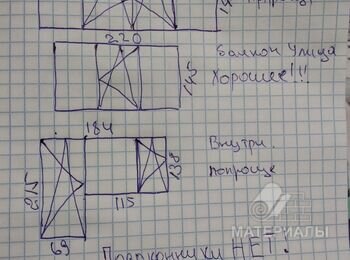 220
Балкон Улица
Хорошее!!!
145
184
Внутри.
попроще
215
138
115
69
Подоконники НЕТ.
МАТЕРИАЛЫ